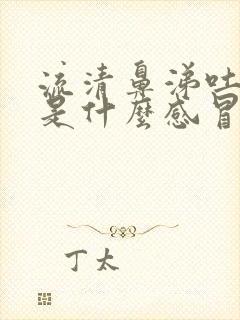 流清鼻涕吐
是什麼感冒
丁太